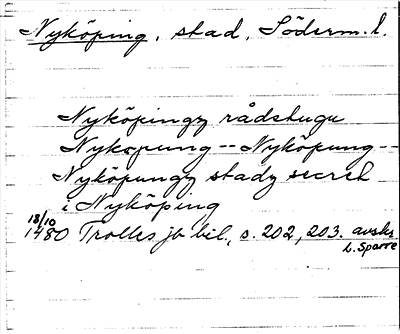 Nyköping, stad, Söderm. l.
Nyköpingz rådstugu
Nykøpung -- Nyköpung --
Nyköpungz stadz secret
i Nyköping
18/10
1480 Trolles jb bil., s. 202, 203. avskr.
L. Sparre